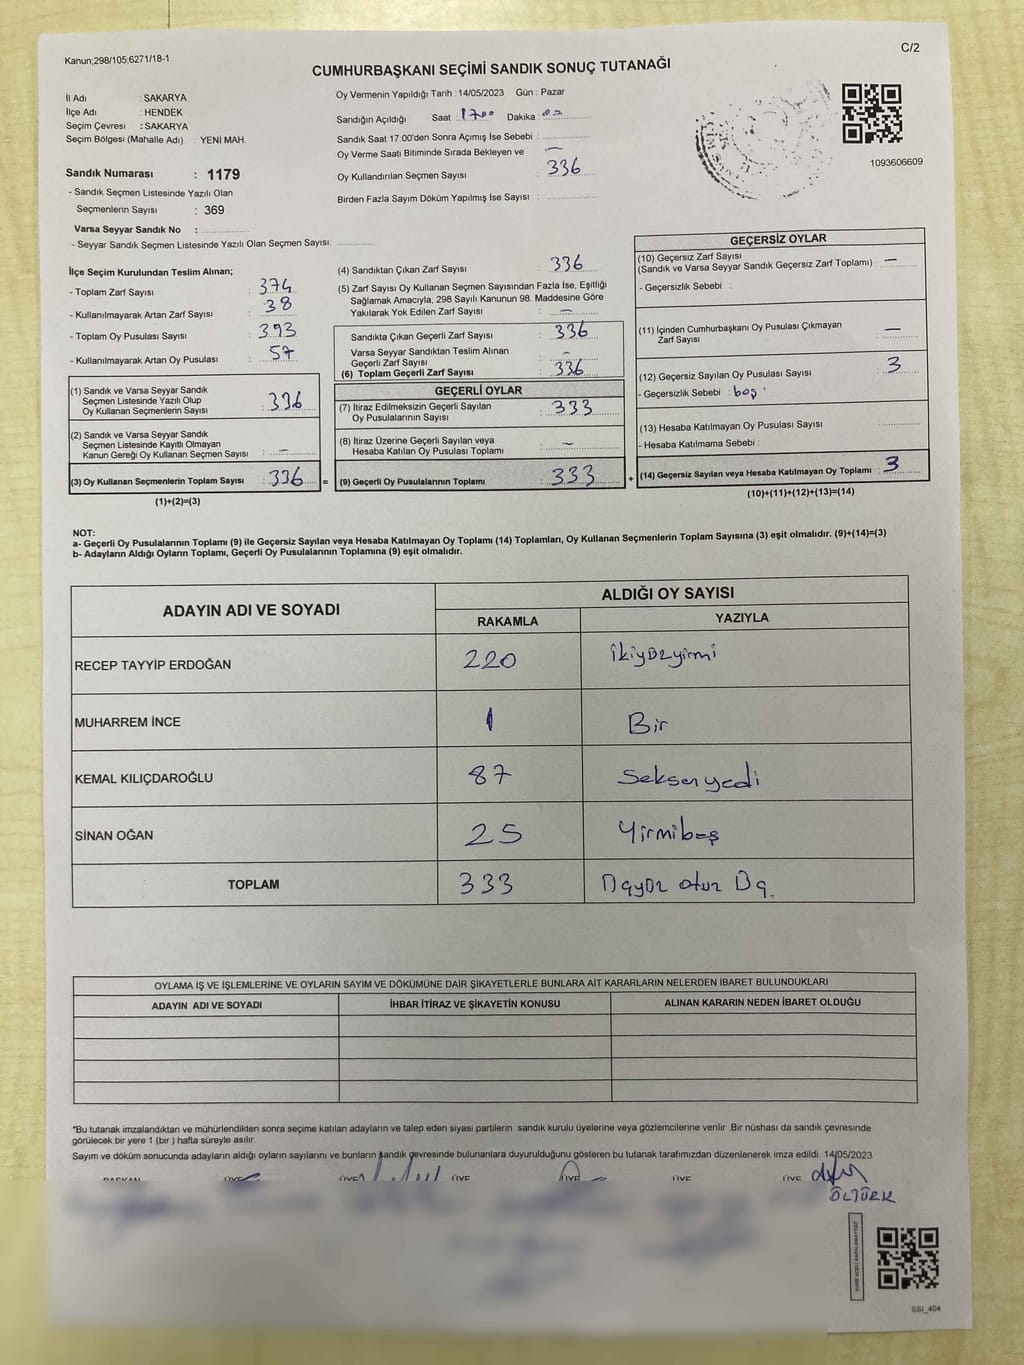 Kanun,298/105,6271/18-1
C/2
CUMHURBAŞKANI SEÇİMİ SANDIK SONUÇ TUTANAĞI
İl Adı : SAKARYA
İlçe Adı : HENDEK
Seçim Çevresi : SAKARYA
Seçim Bölgesi (Mahalle Adı) : YENİ MAH.
Sandık Numarası : 1179
- Sandık Seçmen Listesinde Yazılı Olan
Seçmenlerin Sayısı : 369
Varsa Seyyar Sandık No :
- Seyyar Sandık Seçmen Listesinde Yazılı Olan Seçmen Sayısı:
Oy Vermenin Yapıldığı Tarih : 14/05/2023 Gün : Pazar
Sandığın Açıldığı Saat : 1700 Dakika : 00
Sandık Saat 17:00'den Sonra Açımış İse Sebebi :
Oy Verme Saati Bitiminde Sırada Bekleyen ve
Oy Kullandırılan Seçmen Sayısı : 336
Birden Fazla Sayım Döküm Yapılmış İse Sayısı :
1093606609
İlçe Seçim Kurulundan Teslim Alınan;
- Toplam Zarf Sayısı : 374
- Kullanılmayarak Artan Zarf Sayısı : 38
- Toplam Oy Pusulası Sayısı : 393
- Kullanılmayarak Artan Oy Pusulası : 57
(1) Sandık ve Varsa Seyyar Sandık
Seçmen Listesinde Yazılı Olup
Oy Kullanan Seçmenlerin Sayısı : 336
(2) Sandık ve Varsa Seyyar Sandık
Seçmen Listesinde Kayıtlı Olmayan
Kanun Gereği Oy Kullanan Seçmen Sayısı : —
(3) Oy Kullanan Seçmenlerin Toplam Sayısı : 336 =
(1)+(2)=(3)
(4) Sandıktan Çıkan Zarf Sayısı : 336
(5) Zarf Sayısı Oy Kullanan Seçmen Sayısından Fazla İse, Eşitliği
Sağlamak Amacıyla; 298 Sayılı Kanunun 98. Maddesine Göre
Yakılarak Yok Edilen Zarf Sayısı : —
Sandıkta Çıkan Geçerli Zarf Sayısı : 336
Varsa Seyyar Sandıktan Teslim Alınan
Geçerli Zarf Sayısı : —
(6) Toplam Geçerli Zarf Sayısı : 336
GEÇERLİ OYLAR
(7) İtiraz Edilmeksizin Geçerli Sayılan
Oy Pusulalarının Sayısı : 333
(8) İtiraz Üzerine Geçerli Sayılan veya
Hesaba Katılan Oy Pusulası Toplamı : —
(9) Geçerli Oy Pusulalarının Toplamı : 333 +
GEÇERSİZ OYLAR
(10) Geçersiz Zarf Sayısı
(Sandık ve Varsa Seyyar Sandık Geçersiz Zarf Toplamı) : —
- Geçersizlik Sebebi :
(11) İçinden Cumhurbaşkanı Oy Pusulası Çıkmayan
Zarf Sayısı : —
(12) Geçersiz Sayılan Oy Pusulası Sayısı : 3
- Geçersizlik Sebebi : boş
(13) Hesaba Katılmayan Oy Pusulası Sayısı :
- Hesaba Katılmama Sebebi :
(14) Geçersiz Sayılan veya Hesaba Katılmayan Oy Toplamı : 3
(10)+(11)+(12)+(13)=(14)
NOT:
a- Geçerli Oy Pusulalarının Toplamı (9) ile Geçersiz Sayılan veya Hesaba Katılmayan Oy Toplamı (14) Toplamları, Oy Kullanan Seçmenlerin Toplam Sayısına (3) eşit olmalıdır. (9)+(14)=(3)
b- Adayların Aldığı Oyların Toplamı, Geçerli Oy Pusulalarının Toplamına (9) eşit olmalıdır.
ADAYIN ADI VE SOYADI
ALDIĞI OY SAYISI
RAKAMLA YAZIYLA
RECEP TAYYİP ERDOĞAN 220 ikiyüzyirmi
MUHARREM İNCE 1 Bir
KEMAL KILIÇDAROĞLU 87 Seksenyedi
SİNAN OĞAN 25 Yirmibeş
TOPLAM 333 Üçyüz otuz Üç.
OYLAMA İŞ VE İŞLEMLERİNE VE OYLARIN SAYIM VE DÖKÜMÜNE DAİR ŞİKAYETLERLE BUNLARA AİT KARARLARIN NELERDEN İBARET BULUNDUKLARI
ADAYIN ADI VE SOYADI İHBAR İTİRAZ VE ŞİKAYETİN KONUSU ALINAN KARARIN NEDEN İBARET OLDUĞU
*Bu tutanak imzalandıktan ve mühürlendikten sonra seçime katılan adayların ve talep eden siyasi partilerin sandık kurulu üyelerine veya gözlemcilerine verilir. Bir nüshası da sandık çevresinde
görülecek bir yere 1 (bir ) hafta süreyle asılır.
Sayım ve döküm sonucunda adayların aldığı oyların sayılarını ve bunların sandık çevresinde bulunanlara duyurulduğunu gösteren bu tutanak tarafımızdan düzenlenerek imza edildi. 14/05/2023
BAŞKAN ÜYE ÜYE ÜYE ÜYE ÜYE ÜYE
ÖZTÜRK
SSI_404